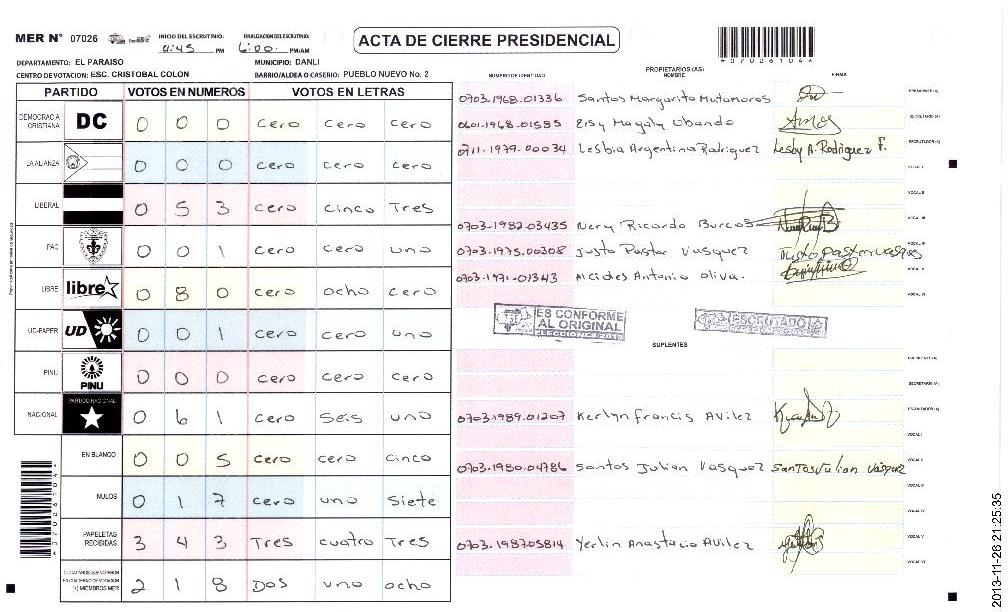 MER N° 07026
INICIO DEL ESCRUTINIO: 4:45 PM
FINALIZACION DEL ESCRUTINIO: 6:00 PM/AM
ACTA DE CIERRE PRESIDENCIAL
DEPARTAMENTO: EL PARAISO
MUNICIPIO: DANLI
CENTRO DE VOTACION: ESC. CRISTOBAL COLON
BARRIO/ALDEA O CASERIO: PUEBLO NUEVO No. 2
PARTIDO VOTOS EN NUMEROS VOTOS EN LETRAS
DEMOCRACIA CRISTIANA DC 0 0 0 cero cero cero
LA ALIANZA 0 0 0 cero cero cero
LIBERAL 0 5 3 cero cinco Tres
PAC 0 0 1 cero cero uno
LIBRE libre 0 8 0 cero ocho cero
UD-FAPER UD 0 0 1 cero cero uno
PINU PINU 0 0 0 cero cero cero
NACIONAL PARTIDO NACIONAL 0 6 1 cero seis uno
EN BLANCO 0 0 5 cero cero cinco
NULOS 0 1 7 cero uno siete
PAPELETAS RECIBIDAS 3 4 3 Tres cuatro Tres
CIUDADANOS QUE VOTARON
EN CUADERNO DE VOTACION
(+) MIEMBROS MER 2 1 8 Dos uno ocho
NUMERO DE IDENTIDAD
PROPIETARIOS (AS)
NOMBRE
FIRMA
0703-1968-01336 Santos Margarito Matamoros PRESIDENTE (A)
0601-1968-01585 Elsy Magaly Obando SECRETARIO (A)
0711-1979-00034 Lesbia Argentina Rodriguez Lesby A. Rodriguez F. ESCRUTADOR (A)
VOCAL I
VOCAL II
0703-1982-03435 Nery Ricardo Burcos VOCAL III
0703-1975-00308 Justo Pastor Vasquez Justo pastor vasques VOCAL IV
0703-1971-01343 Alcides Antonio Oliva. VOCAL V
VOCAL VI
TSE ES CONFORME
AL ORIGINAL
ELECCIONES 2013
ESCRUTADO
SUPLENTES
PRESIDENTE (A)
SECRETARIO (A)
0703-1989-01207 Kerlyn Francis Avilez ESCRUTADOR (A)
VOCAL I
VOCAL II
0703-1980-04786 Santos Julian Vasquez Santos Julian Vasquez
VOCAL III
VOCAL IV
0703-1987-05814 Yerlin Anastacio Avilez VOCAL V
VOCAL VI
2013-11-26 21:25:35